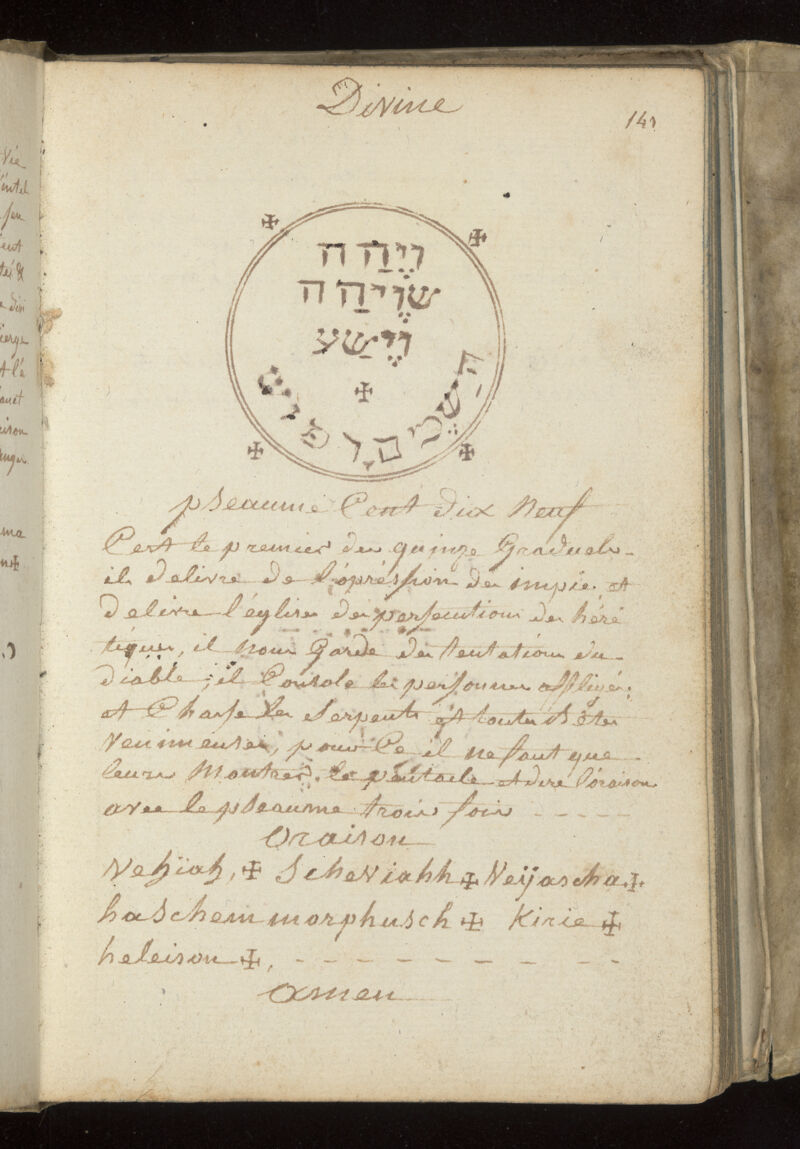 Divine
141
וְיָהַה
שְוְיהַה
וְיְשַע
pseaume Cent dix Neuf
C'est le premier des quinze Graduels.
il delivre de l'opression des impies, et
delivre l'église des persecutions des héré
tiques, il nous Garde des tentations du
diable; il Console les personnes affligées,
et Chasse les Serpents et toutes bêtes
Venimeuses, pour Ce il ne faut que
leurs Montrer le pentacle et dire l'oraison
avec le pseaume trois fois - - - - -
Oraison
Vehiah, ✠ Scheviahh ✠ Veÿascha ✠
haschem morphusch ✠ Kirie ✠
heleison ✠, - - - - - - - - - -
Amen